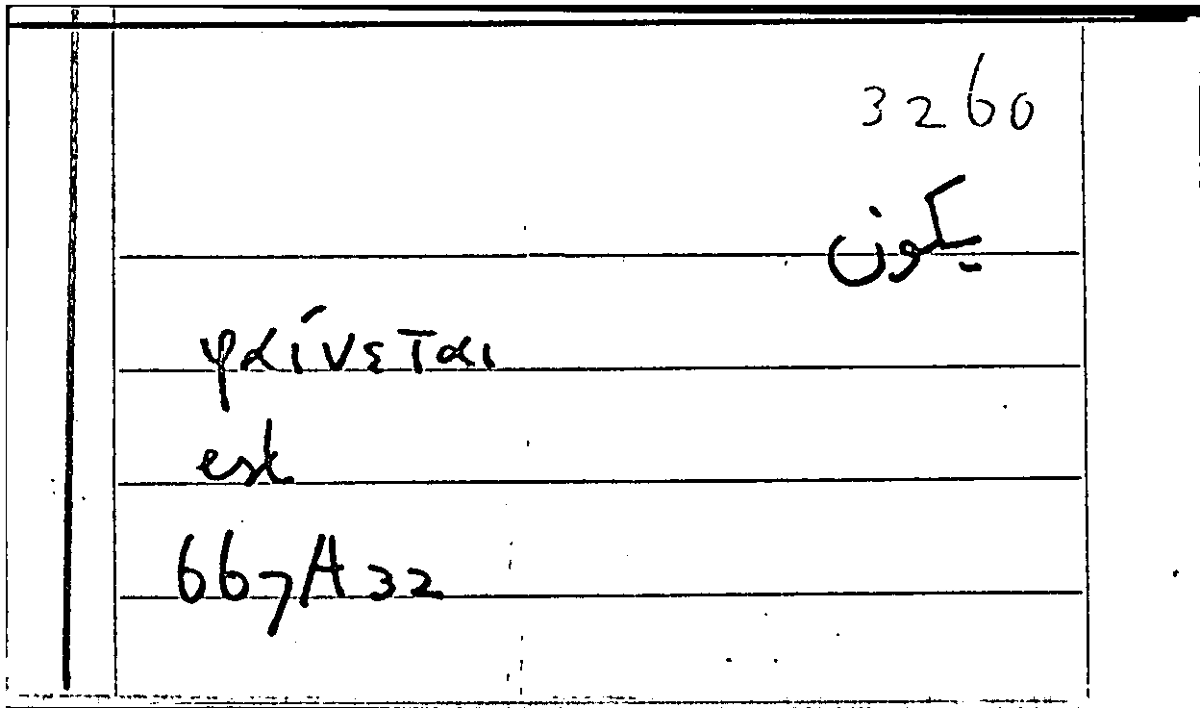 3260
يكون
φαίνεται
est
667A32